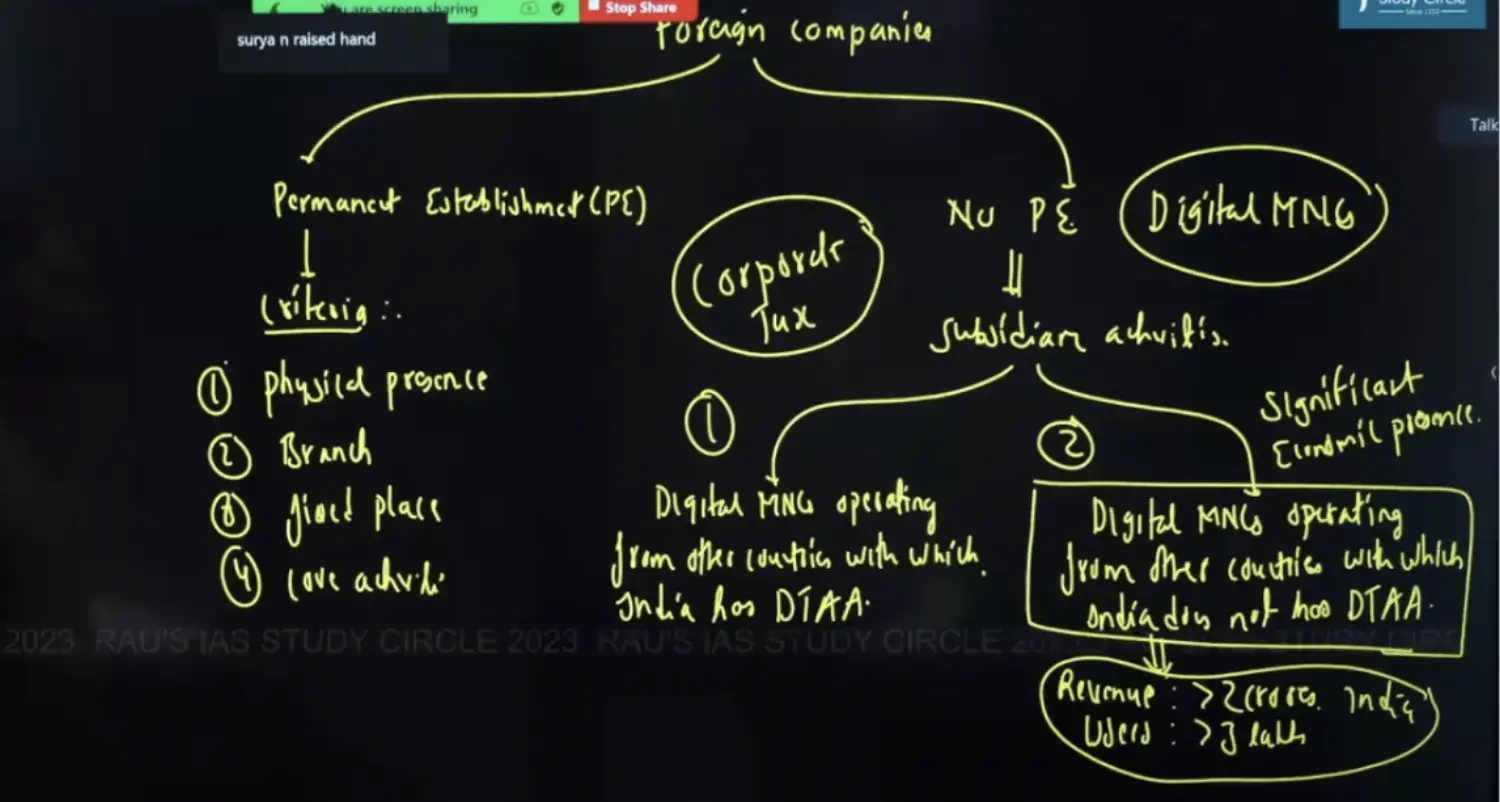 You are screen sharing
Stop Share
Study Circle
surya n raised hand
Foreign companies
Talk
Permanent Establishment (PE)
No PE
Digital MNCs
Corporate
Tax
Criteria :.
Subsidiary activitis.
① physical presence
② Branch
③ fixed place
④ core activiti
①
Digital MNCs operating
from other countries with which
India has DTAA.
②
Significant
Economic presence.
Digital MNCs operating
from other countries with which
India does not has DTAA.
2023 RAU'S IAS STUDY CIRCLE 2023 RAU'S IAS STUDY CIRCLE
Revenue : > 2 crores. India
Users : > 3 lakh